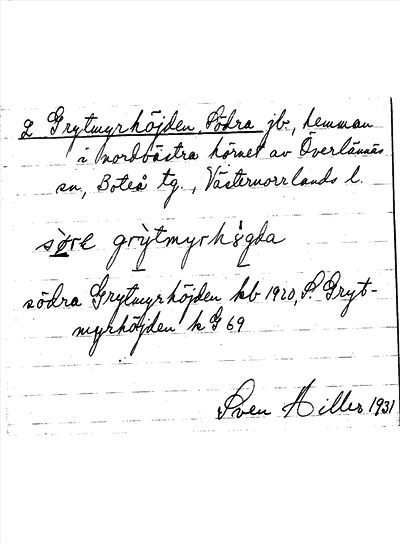 2 Grytmyrhöjden, Södra jb., hemman
i nordöstra hörnet av Överlännäs
sn, Boteå tg., Västernorrlands l.
södra Grytmyrhöjden kb 1920, S. Gryt-
myrhöjden k G 69
Sven Hiller 1931